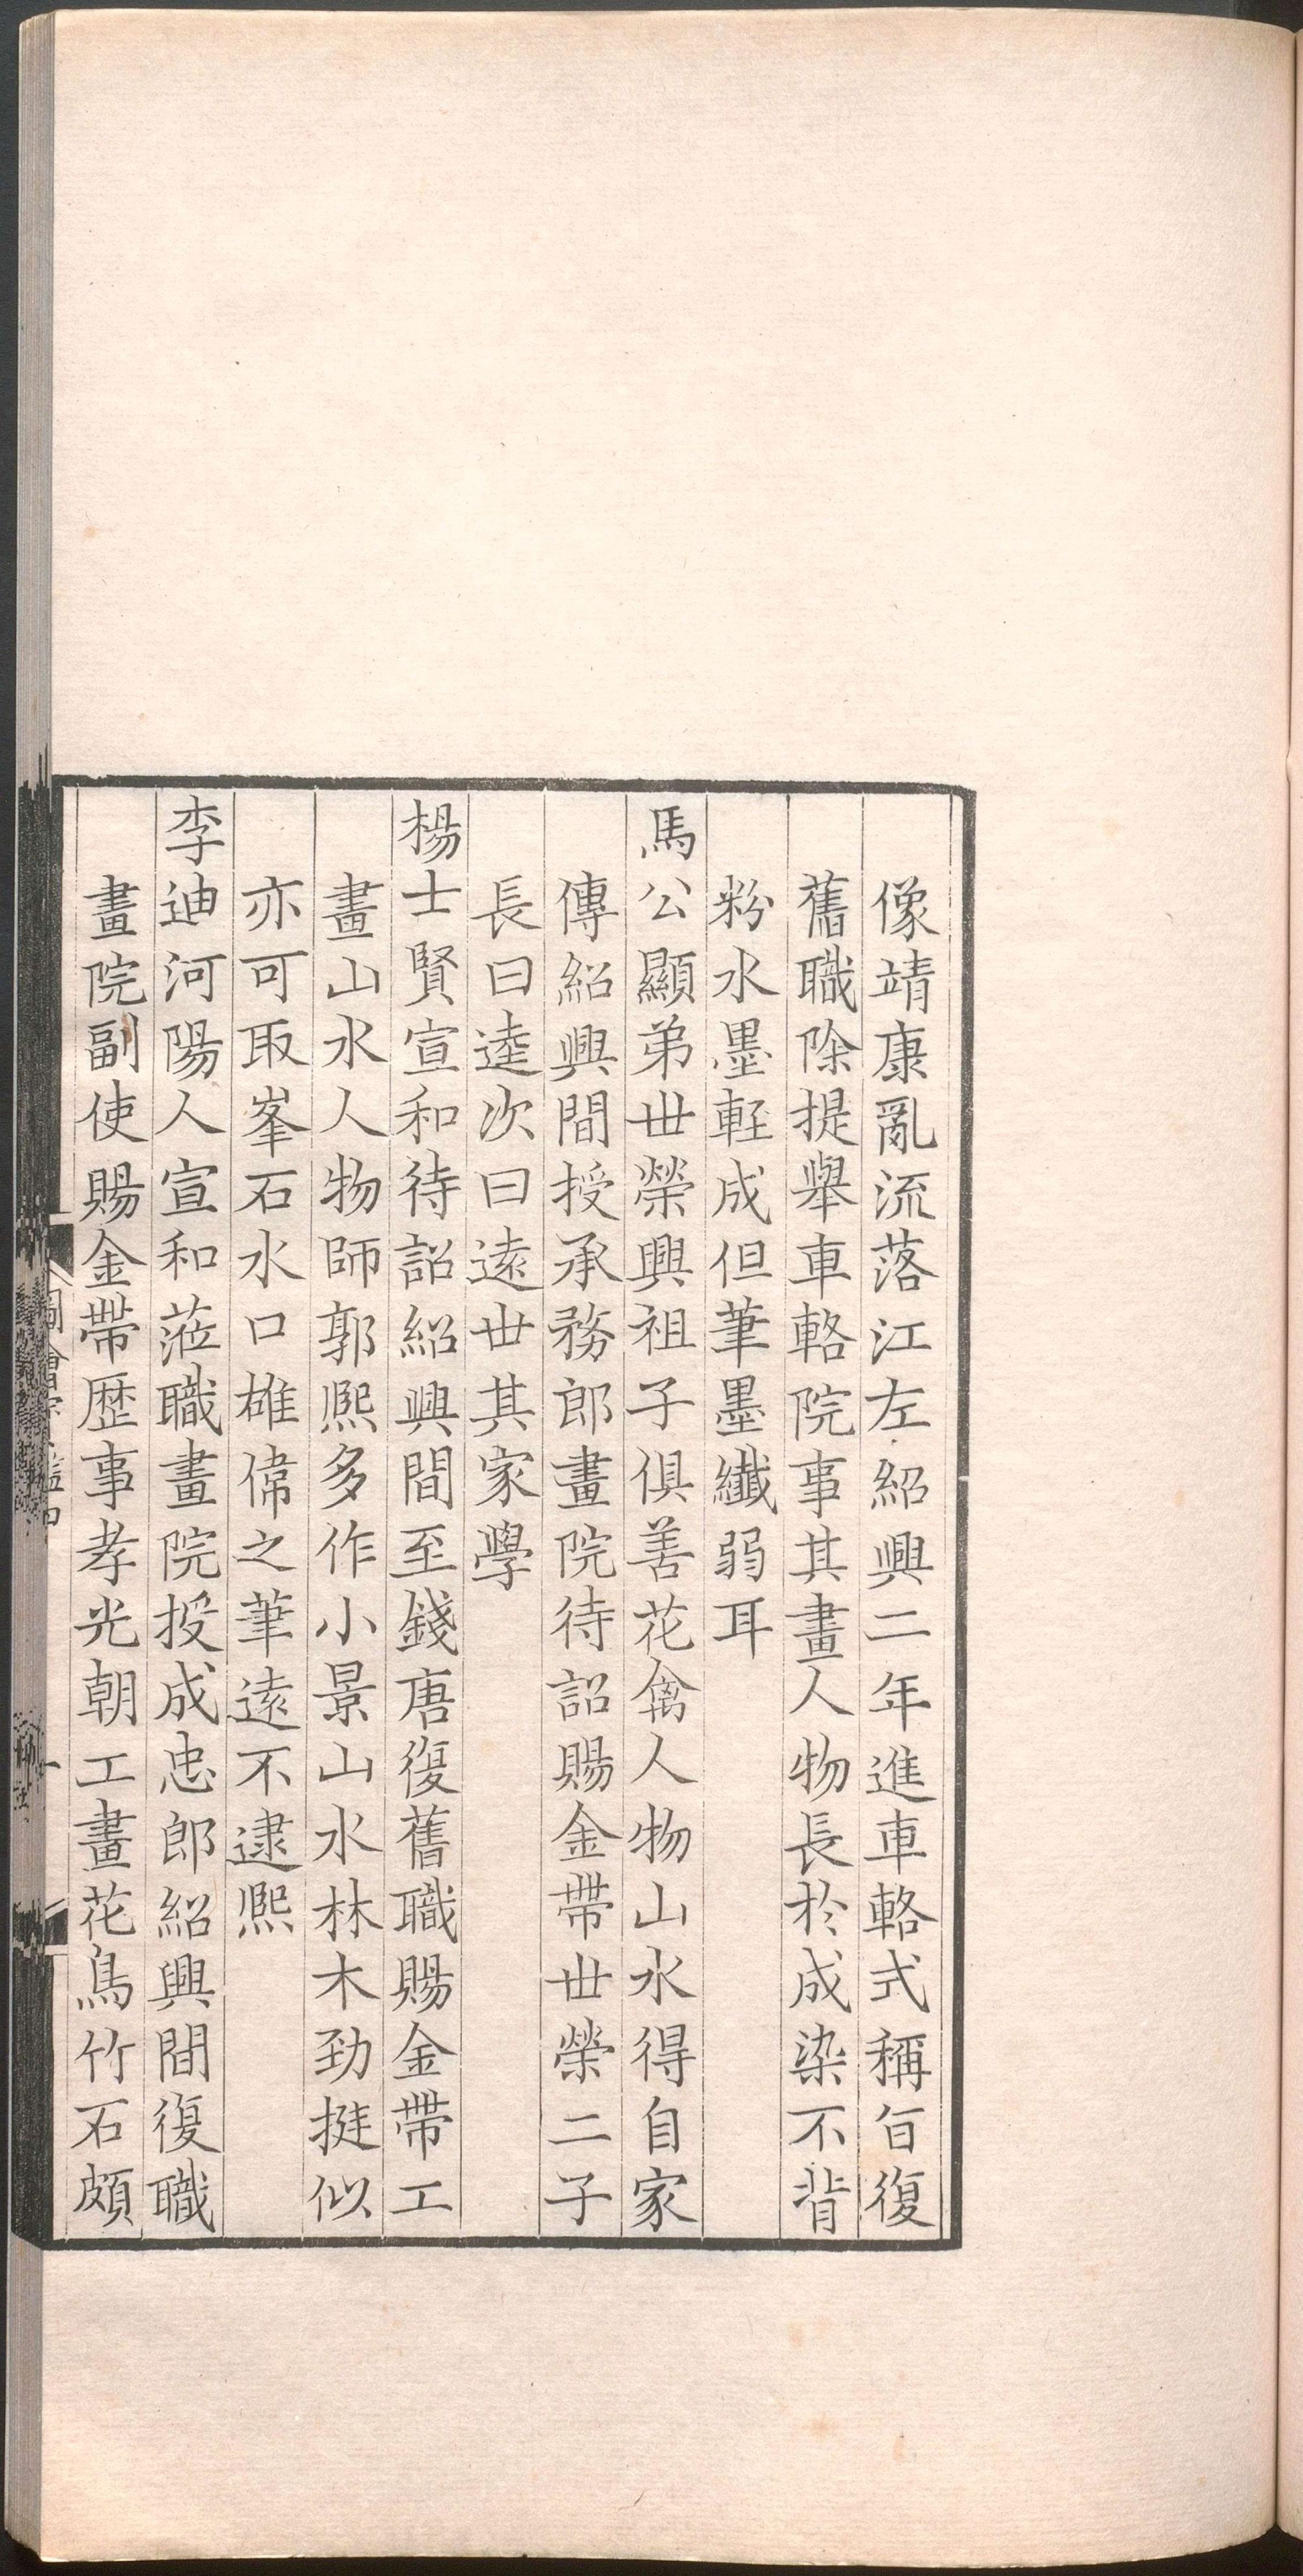 像靖康亂流落江左紹興二年進車輅式稱旨復
舊職除提舉車輅院事其畫人物長於成染不背
粉水墨輕成但筆墨纖弱耳
馬公顯弟世榮興祖子俱善花禽人物山水得自家
傳紹興間授承務郎畫院待詔賜金帶世榮二子
長曰逵次曰遠世其家學
楊士賢宣和待詔紹興間至錢唐復舊職賜金帶工
畫山水人物師郭熙多作小景山水林木勁挺似
亦可取峯石水口雄偉之筆遠不逮熙
李迪河陽人宣和蒞職畫院授成忠郎紹興間復職
畫院副使賜金帶歷事孝光朝工畫花鳥竹石頗